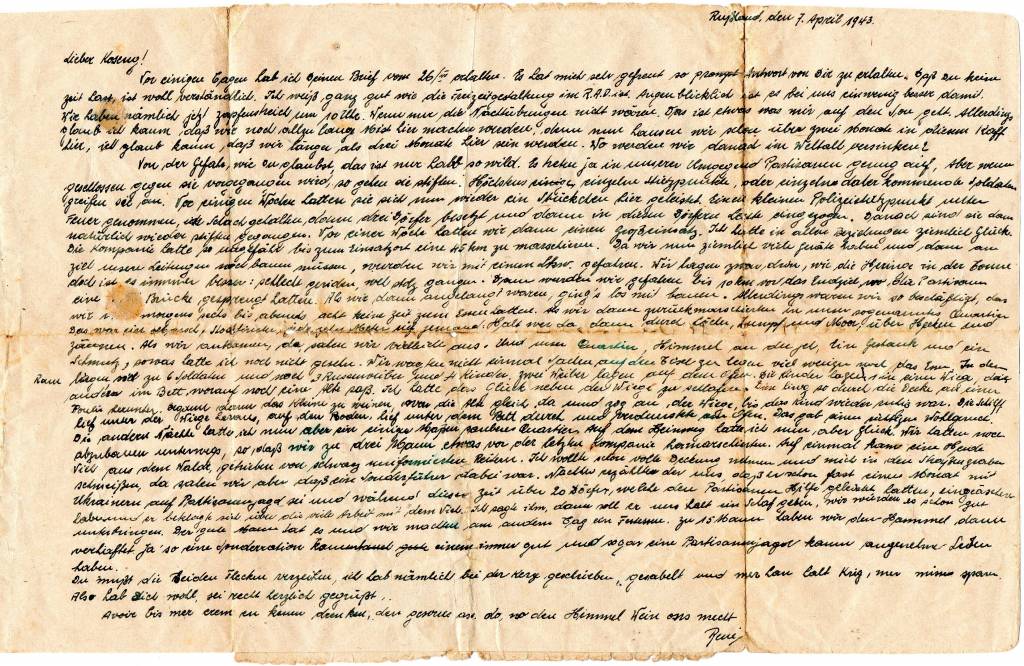 Rußland, den 7. April 1943.
Lieber Koseng!
Vor einigen Tagen hab ich Deinen Brief vom 26/III erhalten. Es hat mich sehr gefreut so prompt Antwort von Dir zu erhalten. Daß Du keine
Zeit hast, ist wohl verständlich. Ich weiß ganz gut wie die Freizeitgestaltung im R.A.D. ist. Augenblicklich ist es bei uns ein wenig besser damit.
Wir haben nämlich jetzt Zapfenstreich um 10 Uhr. Wenn nur die Nachtübungen nicht wären. Das ist etwas was mir auf den geht. Allerdings
glaub ich kaum, daß wir noch allzu lang hier machen werden, denn nun hausen wir schon über zwei Monate in diesem Kaff
hier, ich glaub kaum, daß wir länger als drei Monate hier sein werden. Wo werden wir danach im Weltall versinken?
Von der Gefahr, wie Du glaubst, das ist nur halb so wild. Es halten ja in unserer Umgegend Partisanen genug auf, aber wenn
geschlossen gegen sie vorgegangen wird, so gehen die stiften. Höchstens einzelne Stützpunkte, oder einzelne daher kommende Soldaten
greifen sie an. Vor einigen Wochen hatten sie sich nun wieder ein Stückchen hier geleistet. Einen kleinen Polizeistützpunkt unter
Feuer genommen, schach gehalten, denen drei Dörfer besetzt und dann in diesen Dörfern Leute eingezogen. Danach sind sie dann
natürlich wieder stiften gegangen. Vor einer Woche hatten wir dann einen Großeinsatz. Ich hatte in allen Beziehungen ziemlich Glück.
Die Kompanie hatte so ungefähr bis zum Einsatzort eine 45 km zu marschieren. Da wir nun ziemlich viele Geräte haben und dann am
Ziel unsere Leitungen noch bauen müssen, wurden wir mit einem Lkw. gefahren. Wir lagen zwar drin, wie die Heringe in der Tonne
doch ist es immer besser: schlecht geritten, wie stolz gangen. Dann wurden wir gefahren bis schon vor das Endziel wo die Partisanen
eine Brücke gesprengt hatten. Als wir dann angelangt waren, ging's los mit bauen. Allerdings waren wir so beschäftigt, daß
wir morgens sechs bis abends acht kein Zeit zum Essen hatten. Als wir dann zurückmarschierten in unser sogenanntes Quartier
Das war ein stockfinster, jede zehn Meter rief jemand: Halt wer da, dann durch Löcher, Sumpf und Moor, über Hecken und
Zäunen. Als wir ankamen, da sahen wir vielleicht aus. Und unser Quartier, Himmel an der Ein Gestank und ein
Schmutz, sowas hatte ich noch nicht gesehn. Wir wagten nicht einmal Sachen auf den Boden zu legen viel weniger noch das Brot. In dem
Raum liegen mit zu 6 Soldaten und noch 3 Russenweiber und 4 Kinder, zwei Weiber lagen auf dem Ofen. Die Kinder lagen in einer Wiege, die
andern im Bett, worauf noch eine Alte saß. Ich hatte das Glück neben der Wiege zu schlafen. Die hing so durch die Decke an einer
herunter. Begann dann das Kleine zu weinen, war die Alte gleich da und zog an der Wiege bis das Kind wieder ruhig war. Die
lief unter der Wiege heraus, auf den Boden lief unter dem Bett durch und verdunstete am Ofen. Das gab einen richtigen Wohlgeruch.
Die andern Nächte hatte ich nun aber ein einigermaßen sauberes Quartier. Auf dem Heimweg hatte ich nun aber Glück. Wir hatten noch
abzubauen unterwegs, so daß wir zu drei Mann etwas vor der letzten Kompanie heimmarschierten. Auf einmal kam eine Herde
Vieh aus dem Walde, getrieben von schwarz uniformierten Reitern. Ich wollte schon volle Deckung nehmen und mich in den Straßengraben
schmeißen, da sahen wir aber daß ein Sonderführer dabei war. Nachher erzählte der uns, daß er schon fast seines Monat mit
Ukrainern auf Partisanenjagd sei und während dieser Zeit über 20 Dörfer, welche den Partisanen Hilfe geleistet hatten, eingeäschert
haben und er beklagte sich über die viele Arbeit mit dem Vieh. Ich sagte ihm, dann soll er uns halt ein Schaf geben, wir würden es schon gut
unterbringen. Der gute Mann tat es und wir machten am andern Tag ein Fressen. zu 15 Mann haben wir den Hammel dann
verhaftet ja so eine Sonderration kommt einem immer gut und sogar eine Partisanenjagd kann angenehme Seiten
haben.
Du mußt die beiden Flecken verzeihen, ich hab nämlich bei der Kerz geschrieben, gesabelt und mer han halt Krig, mer müsse sparn.
Also hab Dich wohl, sei recht herzlich gegrüßt..
Avoir bis mer erem zu kenen drenken, den do, no den Himmel Wein ons mecht
René